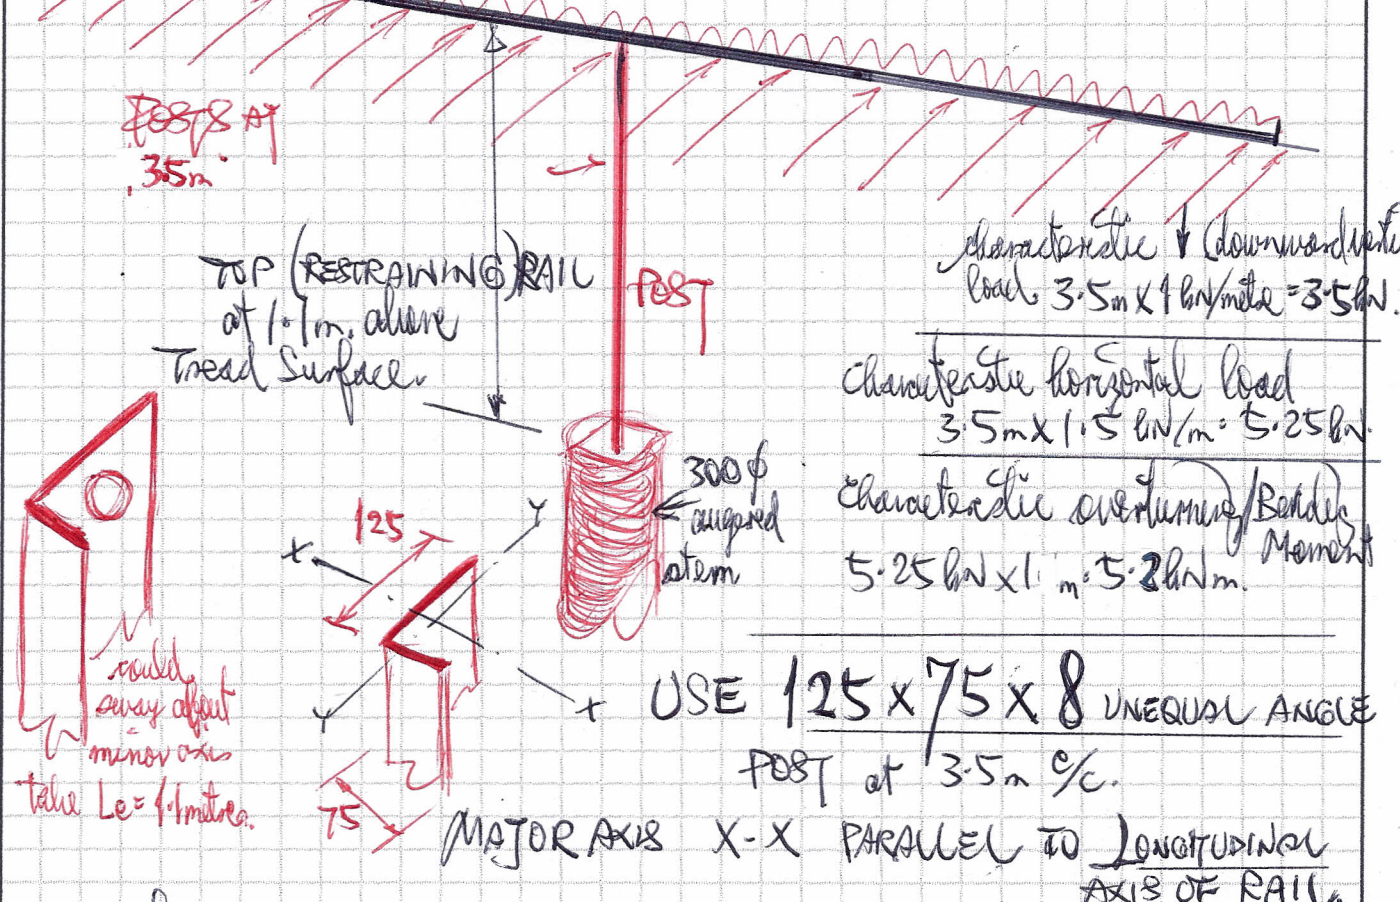 POSTS AT
3.5m
TOP (RESTRAINING) RAIL
at 1.1m. above
Tread Surface.
POST
characteristic ↓ (downward
load. 3.5m X 1 kN/metre = 3.5kN.
Characteristic horizontal load
3.5m X 1.5 kN/m = 5.25kN.
Characteristic overturning/Bending
Moment
5.25kN x 1 m = 5.2kNm.
300φ
augered
stem
125
X
Y
Y
X
75
could
sway about
minor axis
take Le = 1.1metres.
USE 125 x 75 x 8 UNEQUAL ANGLE
POST at 3.5m c/c.
MAJOR AXIS X-X PARALLEL TO LONGITUDINAL
AXIS OF RAIL.